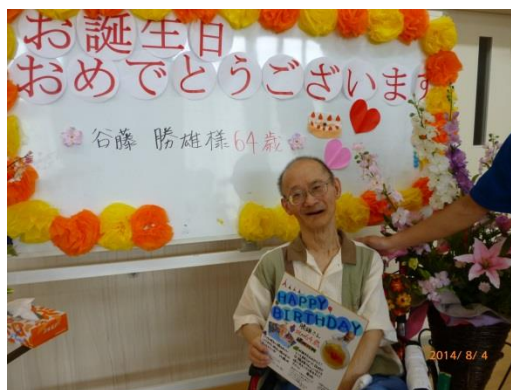 お誕生日
おめでとうございます
谷藤 勝雄様 64歳
HAPPY
BIRTHDAY
2014/ 8/ 4